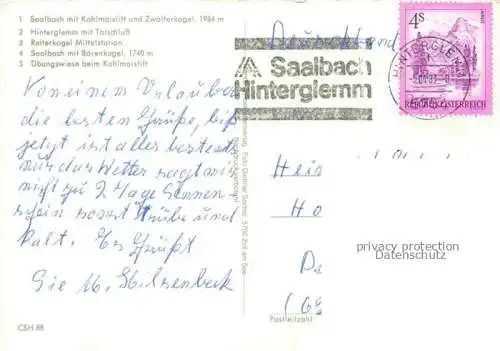 1 Saalbach mit Kohlmaislift und Zwölferkogel, 1984 m
2 Hinterglemm mit Talschluß
3 Reiterkogel Mittelstation
4 Saalbach mit Bärenkogel, 1740 m
5 Übungswiese beim Kohlmaislift
Deutschland
4S
REPUBLIK ÖSTERREICH
HINTERGLEMM
Saalbach
Hinterglemm
Von einem Urlauber
die besten Grüße, bis
jetzt ist alles bestens
nur das Wetter
nicht zu 2 Tage Sonnen
schein sonst trübe und
kalt. Es Grüßt
Sie
Foto Dietmar Sochor, 5700 Zell am See
Hei
Ho
privacy protection
Datenschutz
Postleitzahl
CSH 88